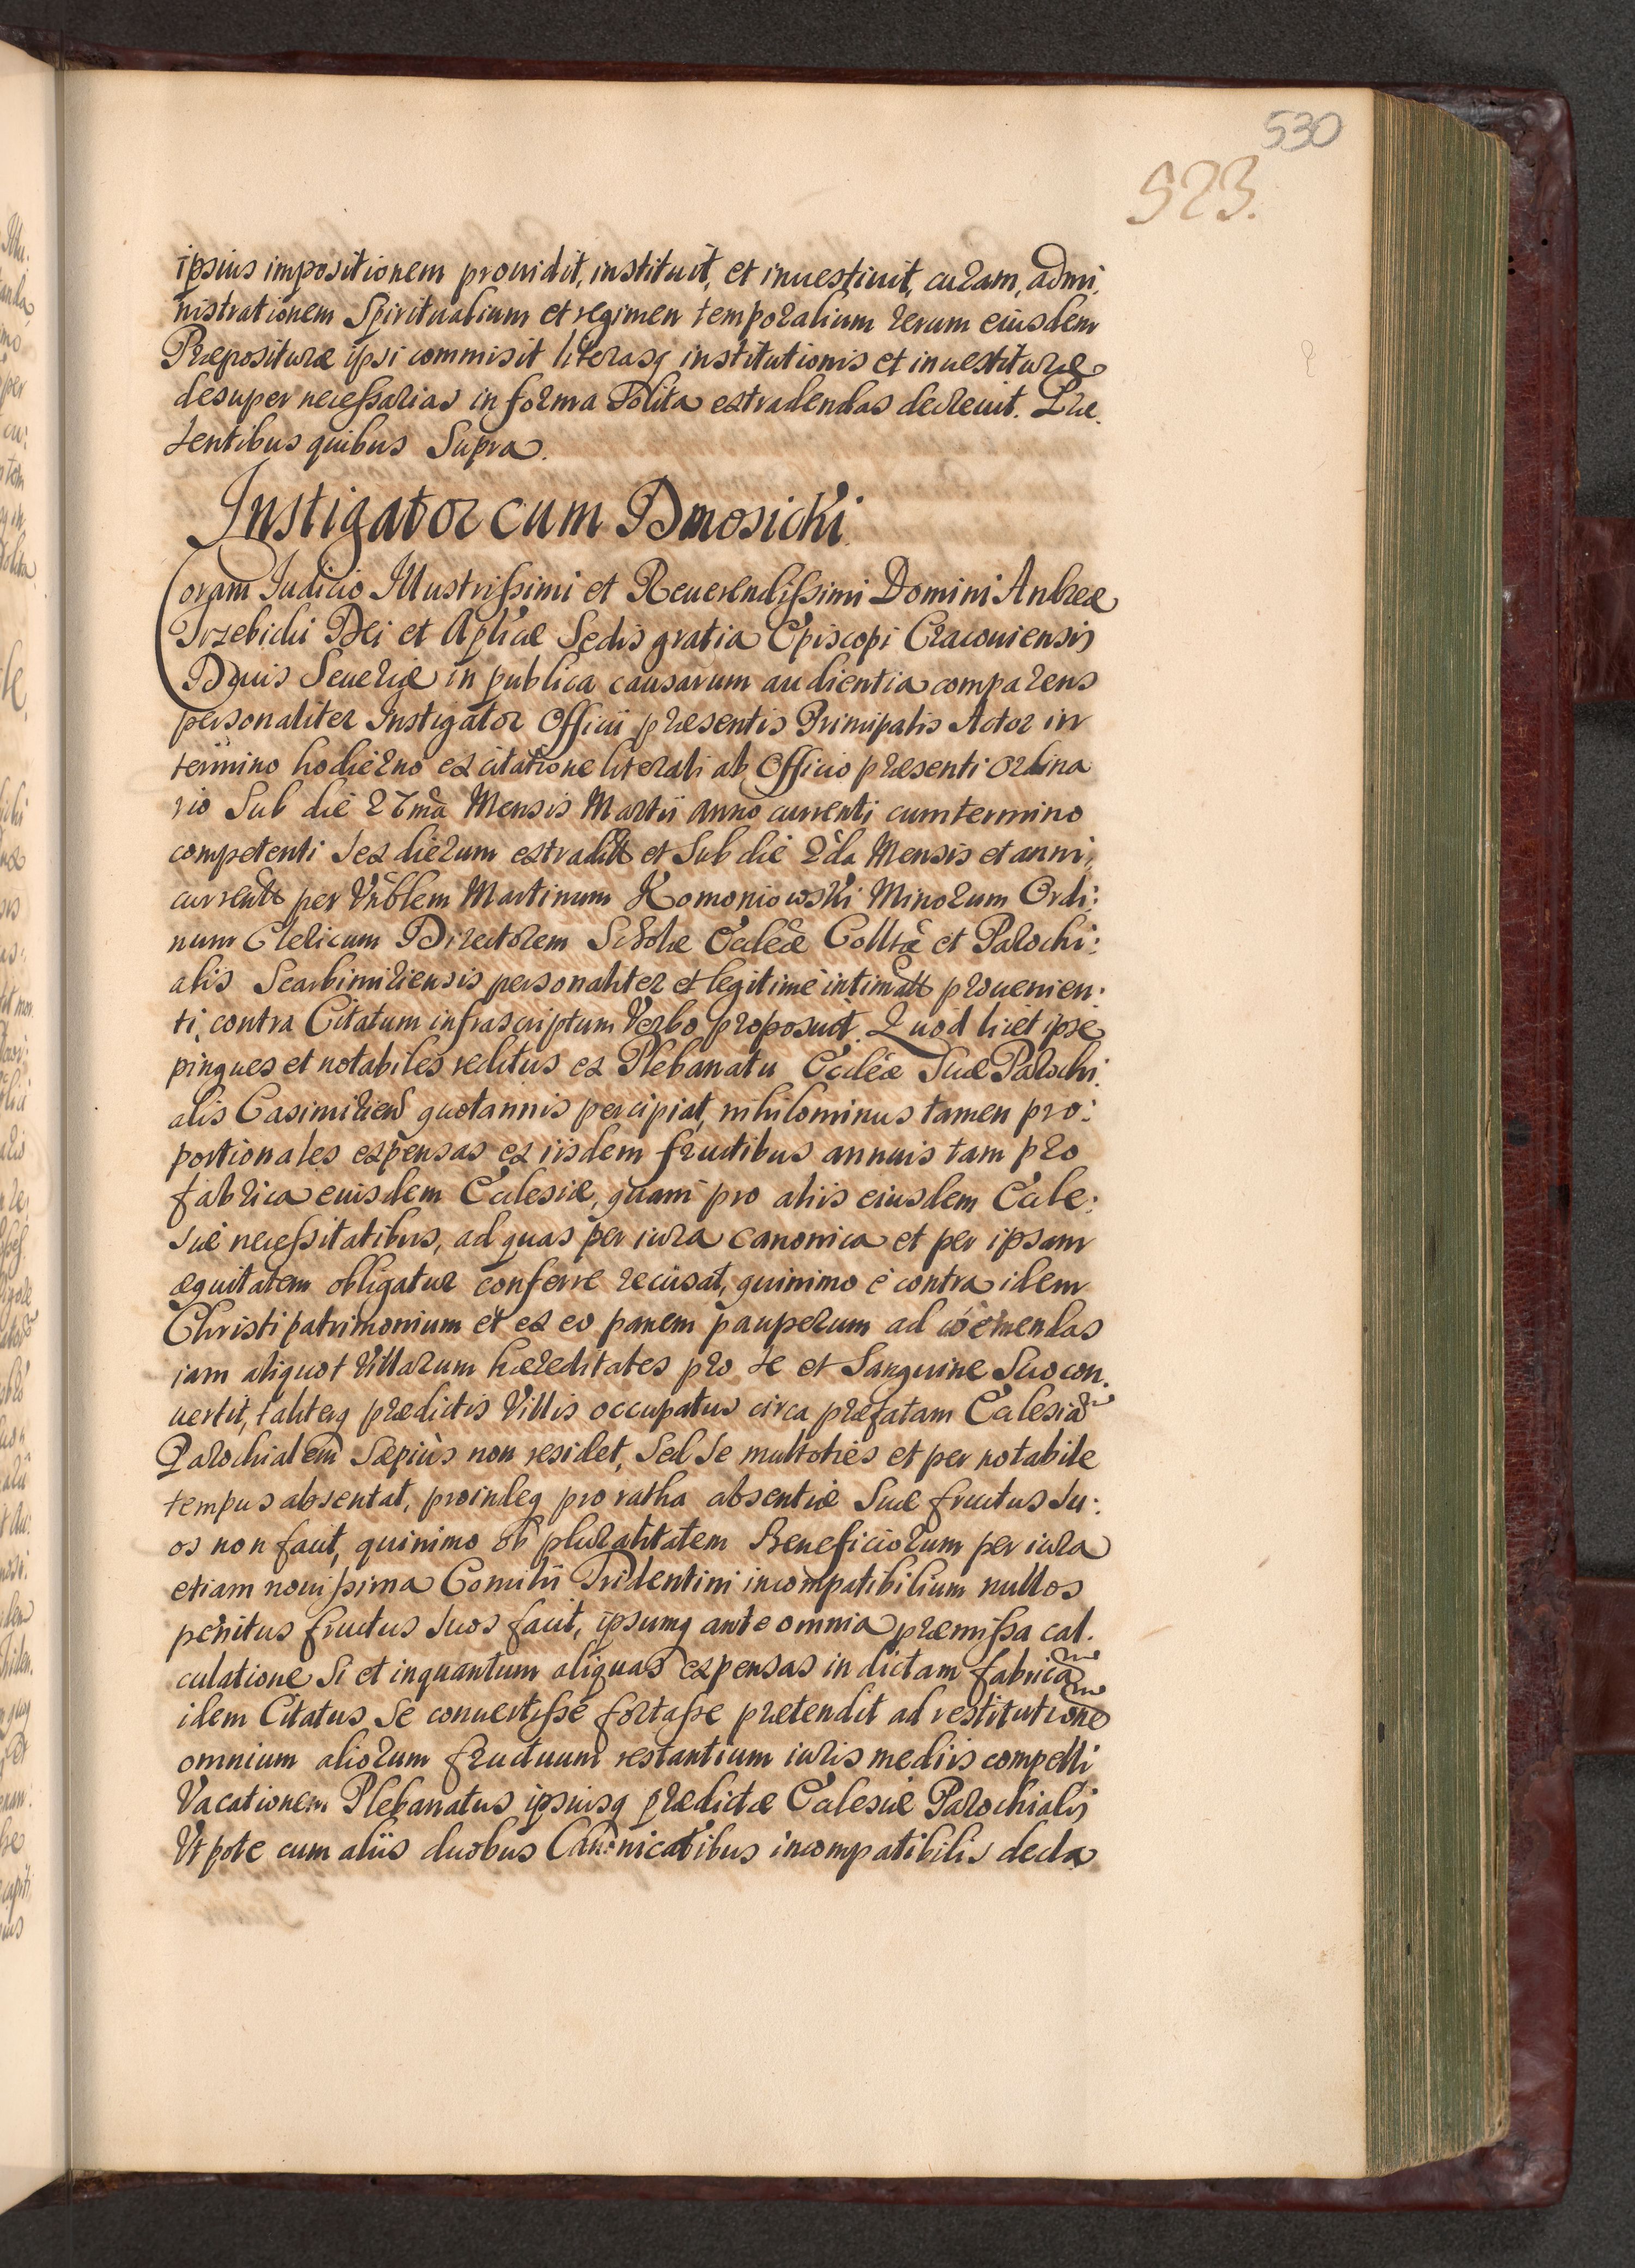 530
523.
ipsius impositionem prouidit, instituit, et inuestiuit, curam, admi,
nistrationem Spiritualium et regimen temporalium rerum eiusdem
Præposituræ ipsi commisit literasq institutionis et inuestituræ
desuper necessarias in forma Solita extradendas decreuit. Præ,
sentibus quibus Supra.
Instigator cum Dmosicki.
Coram Iudicio Illustrissimi et Reuerendissimi Domini Andreæ
Trzebicki Dei et Aplicæ Sedis gratia Episcopi Cracouiensis
Ducis Seueriæ in publica causarum audientia comparens
personaliter Instigator Officii præsentis Principalis Actor in
termino hodierno ex citatione literali ab Officio præsenti ordina
rio Sub die 27ma Mensis Martii anno currenti cum termino
competenti sex dierum extradita et Sub die 2da Mensis et anni,
currentis per Vnblem Martinum Komoniowski Minorum Ordi:
num Clericum Directorem Scholæ Ecclēæ Colltæ et Parochi:
alis Scarbimiriensis personaliter et legitime intimata prouenien:
ti, contra Citatum infrascriptum Verbo proposuit. Quod licet ipse
pingues et notabiles reditus ex Plebanatu Ecclēæ Suæ Parochi,
alis Casimirien quotannis percipiat, nihilominus tamen pro:
portionales expensas ex iisdem fructibus annuis tam pro
fabrica eiusdem Ecclesiæ, quam pro aliis eiusdem Eccle:
siæ necessitatibus, ad quas per iura canonica et per ipsam
æquitatem obligatur conferre recusat, quinimo è contra idem
Christi patrimonium et ex eo panem pauperum ad coemendas
iam aliquot Villarum hæreditates pro se et Sanguine Suo con,
uertit, taliterq prædictis Villis occupatus circa præfatam Ecclesiam
Parochialem Sæpius non residet, Sed Se multoties et per notabile
tempus absentat, proindeq pro ratha absentiæ Suæ fructus su:
os non facit, quinimo ob pluralitatem Beneficiorum per iura
etiam nouissima Concilii Tridentini incompatibilium nullos
penitus fructus suos facit, ipsumq ante omnia præmissa cal,
culatione Si et inquantum aliquas expensas in dictam fabricam
idem Citatus Se conuertisse fortasse prætendit ad restitutionem
omnium aliorum fructuum restantium iuris mediis compelli
Vacationem Plebanatus ipsiusq prædictæ Ecclesiæ Parochialis
Vt pote cum aliis duobus Canonicatibus incompatibilis decla